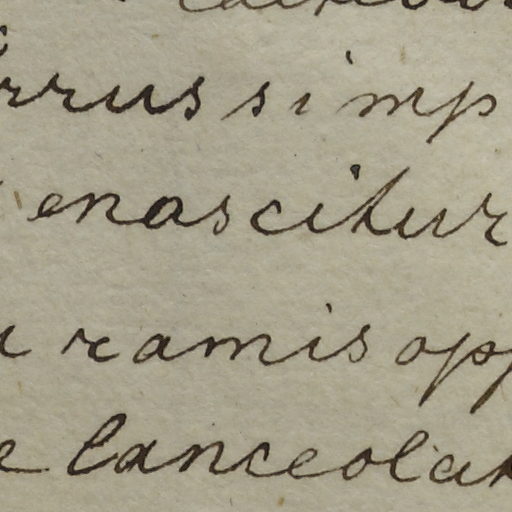 rrus simp
enascitur
ramis opp
e lanceolat